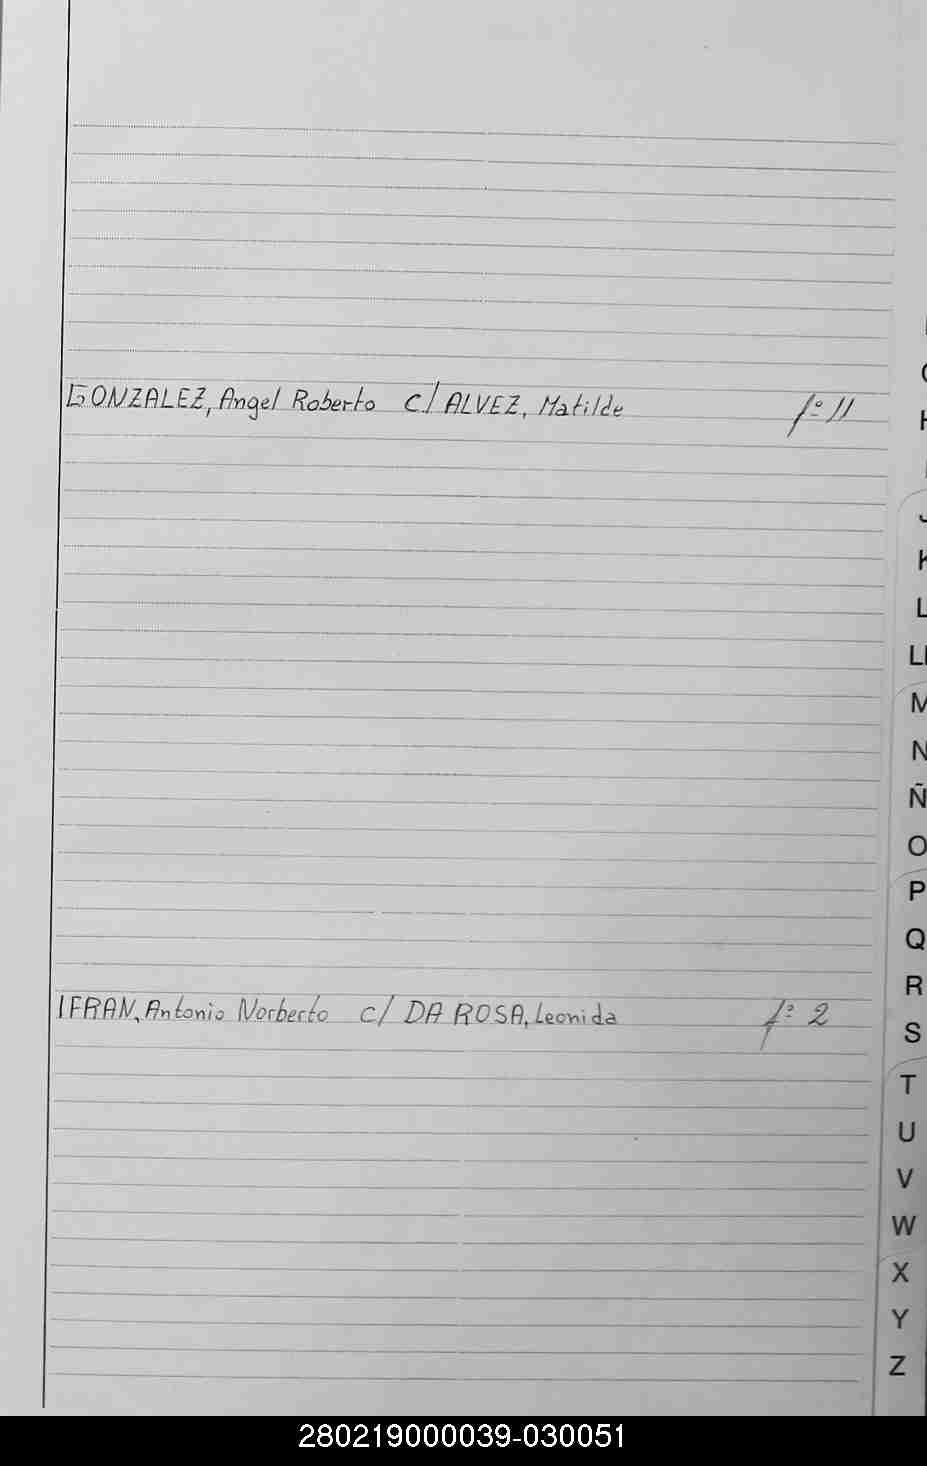 GONZALEZ, Angel Roberto c/ ALVEZ, Matilde fº 11
IFRAN, Antonio Norberto c/ DA ROSA, Leonida fº 2
H
J
K
L
LL
M
N
Ñ
O
P
Q
R
S
T
U
V
W
X
Y
Z
280219000039-030051